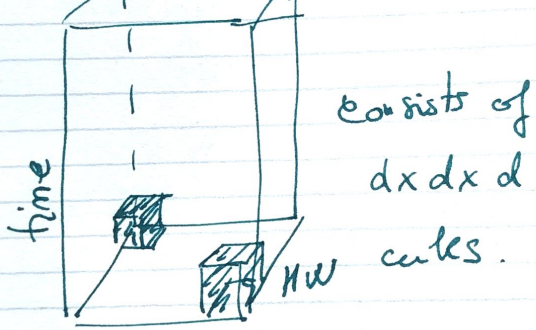 time
HW
Consists of
d x d x d
cubes.